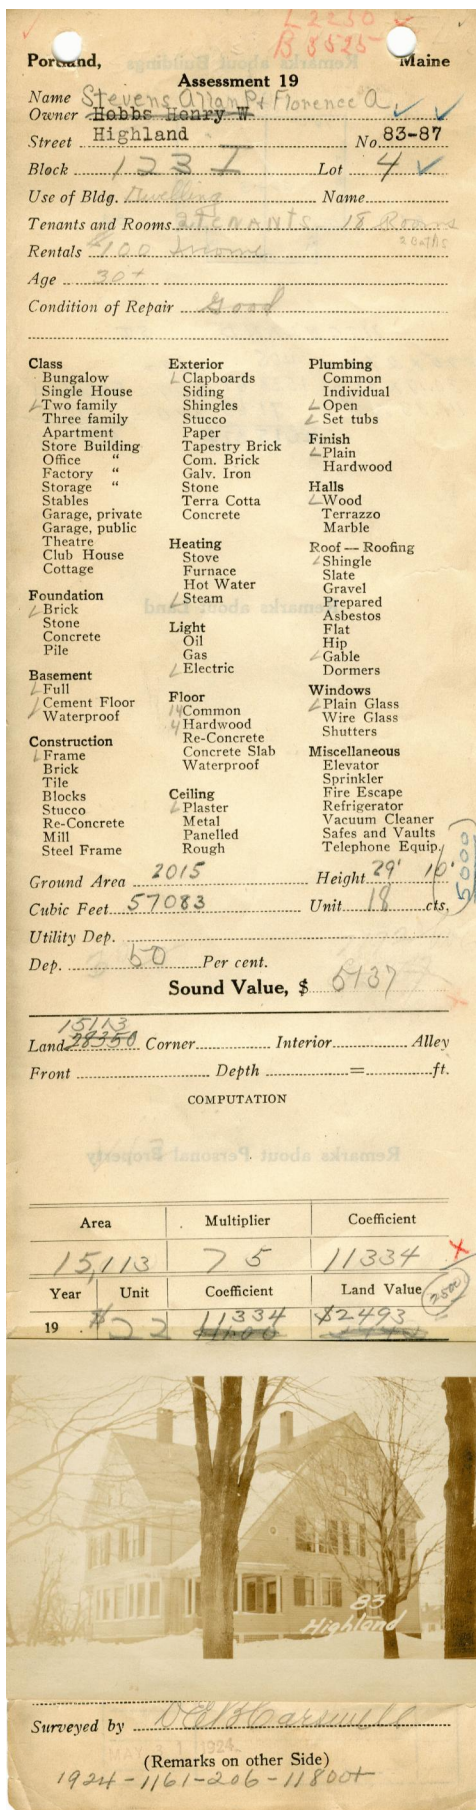 L 2250
B 8525
Portland, Maine
Assessment 19
Name Stevens Allan P. & Florence A.
Owner Hobbs Henry W
Street Highland No. 83-87
Block 123 I Lot 4
Use of Bldg. Dwelling Name
Tenants and Rooms 2 TENANTS 18 Rooms
2 Baths
Rentals $100 Income
Age 30+
Condition of Repair Good
Class
Bungalow
Single House
Two family
Three family
Apartment
Store Building
Office "
Factory "
Storage "
Stables
Garage, private
Garage, public
Theatre
Club House
Cottage
Foundation
Brick
Stone
Concrete
Pile
Basement
Full
Cement Floor
Waterproof
Construction
Frame
Brick
Tile
Blocks
Stucco
Re-Concrete
Mill
Steel Frame
Exterior
Clapboards
Siding
Shingles
Stucco
Paper
Tapestry Brick
Com. Brick
Galv. Iron
Stone
Terra Cotta
Concrete
Heating
Stove
Furnace
Hot Water
Steam
Light
Oil
Gas
Electric
Floor
14 Common
4 Hardwood
Re-Concrete
Concrete Slab
Waterproof
Ceiling
Plaster
Metal
Panelled
Rough
Plumbing
Common
Individual
Open
Set tubs
Finish
Plain
Hardwood
Halls
Wood
Terrazzo
Marble
Roof — Roofing
Shingle
Slate
Gravel
Prepared
Asbestos
Flat
Hip
Gable
Dormers
Windows
Plain Glass
Wire Glass
Shutters
Miscellaneous
Elevator
Sprinkler
Fire Escape
Refrigerator
Vacuum Cleaner
Safes and Vaults
Telephone Equip.
5000
Ground Area 2015 Height 29' 10'
Cubic Feet 57083 Unit 18 cts.
Utility Dep.
Dep. 50 Per cent.
Sound Value, $ 5137
15113
Land 28350 Corner Interior Alley
Front Depth = ft.
COMPUTATION
Area Multiplier Coefficient
15,113 75 11334
Year Unit Coefficient Land Value
2500
19 $22 11334 $2493
83
Highland
Surveyed by D E B Carswell
MAY 31 1924
(Remarks on other Side)
1924-1161-206-11800+